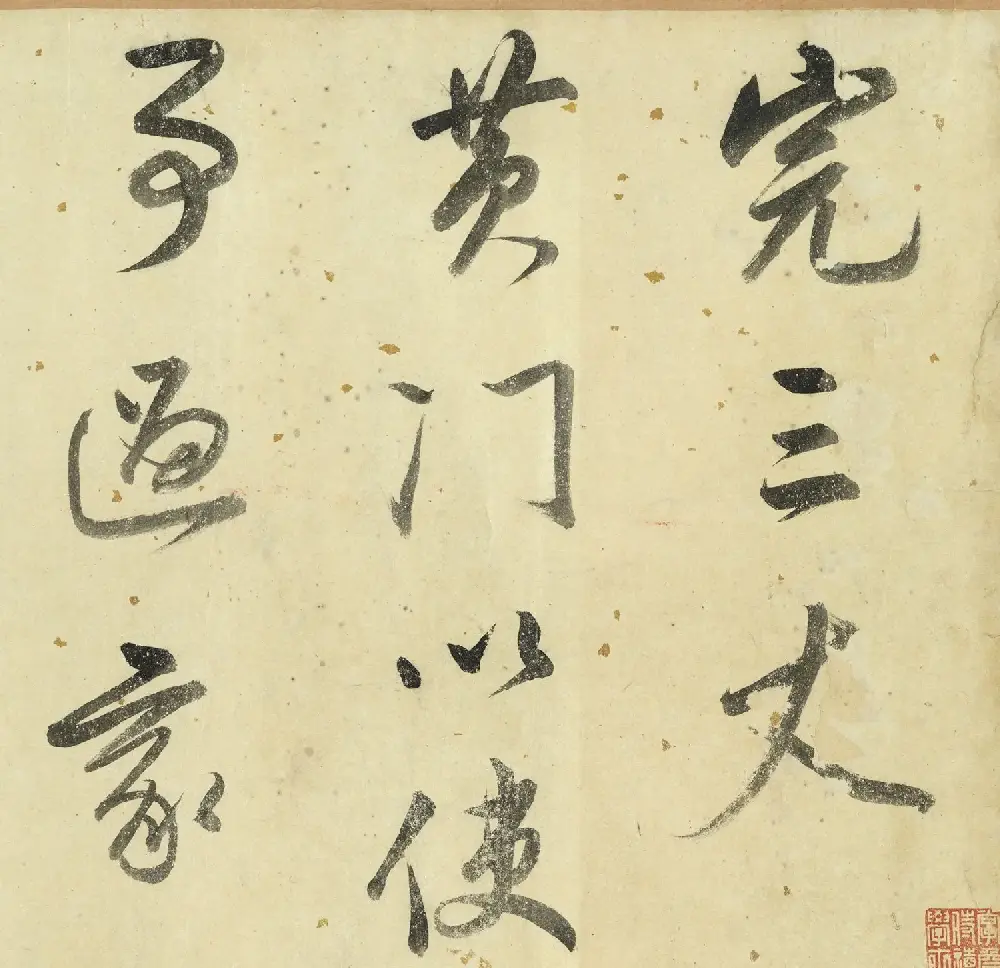 完三丈
黄门以使
事過家